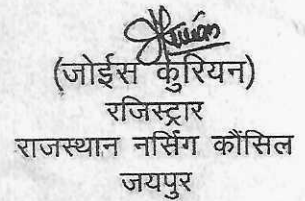 (जोईस कुरियन)
रजिस्ट्रार
राजस्थान नर्सिग कौंसिल
जयपुर